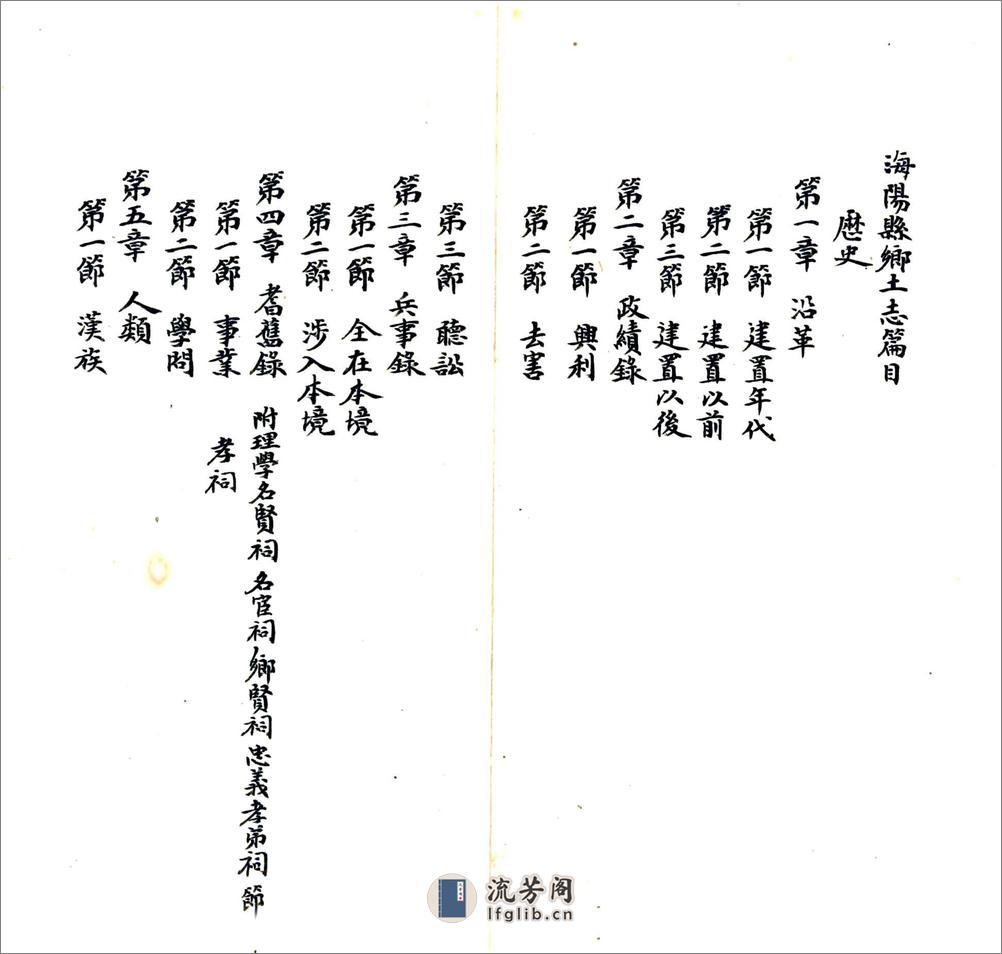 海陽縣鄉土志篇目
歷史
第一章 沿革
第一節 建置年代
第二節 建置以前
第三節 建置以後
第二章 政績錄
第一節 興利
第二節 去害
第三節 聽訟
第三章 兵事錄
第一節 全在本境
第二節 涉入本境
第四章 耆舊錄 附理學名賢祠 名宦祠 鄉賢祠 忠義孝弟祠 節
孝祠
第一節 事業
第二節 學問
第五章 人類
第一節 漢族
流芳阁
lfglib.cn